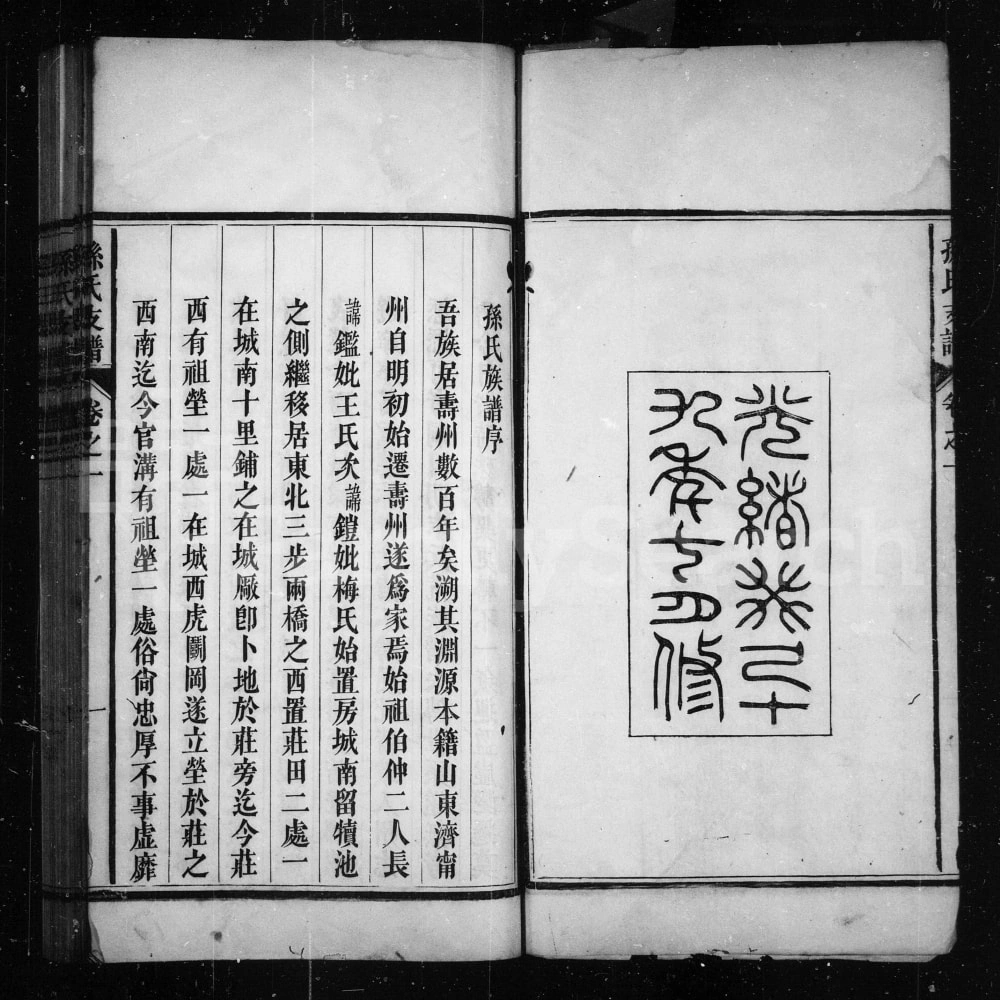 孫氏支譜 卷之一
光緒十
九年四修
孫氏族譜序
吾族居壽州數百年矣溯其淵源本籍山東濟甯
州自明初始遷壽州遂爲家焉始祖伯仲二人長
諱鑑妣王氏次諱鎧妣梅氏始置房城南留犢池
之側繼移居東北三步兩橋之西置莊田二處一
在城南十里鋪之在城厫卽卜地於莊旁迄今莊
西有祖塋一處一在城西虎鬭岡遂立塋於莊之
西南迄今官溝有祖塋一處俗尙忠厚不事虛靡
孫氏支譜 卷之一 一